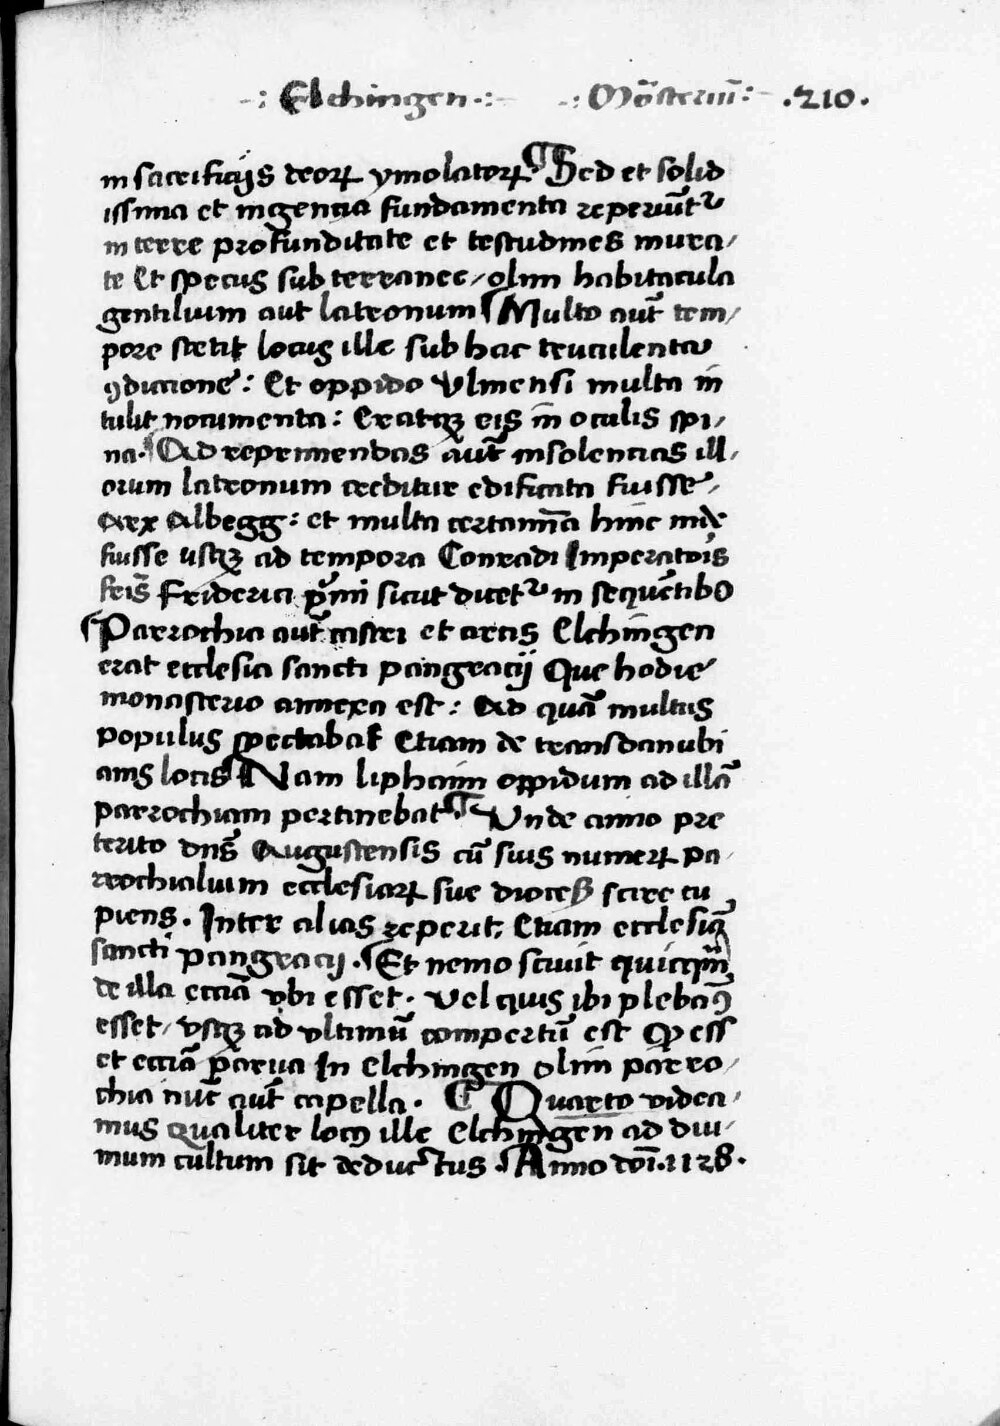 -: Elchingen :- -: Mōsteriū: - .210.
in sacrificijs deoꝝ ymolatoꝝ Sed et solid
issima et ingencia fundamenta reperiūt᷑
in terre profunditate et testudines mura/
te Et specus subterranee / olim habitacula
gentilium aut latronum Multo aūt tem/
pore stetit locus ille sub hac truculenta
ꝯdiccione : Et oppido Vlmensi multa in
tulit nocumenta : Eratqꝫ eis in oculis spi/
na. Ad reprimendas aūt insolencias ill/
orum latronum creditur edificata fuisse /
Arx Albegg : et multa certamīa hinc inde
fuisse usqꝫ ad tempora Conradi Imperatoris
frīs Friderici p̄mi sicut dicet᷑ in sequētibꝰ
Parrochia aūt castri et arcis Elchingen
erat ecclesia sancti pangracij Que hodie
monasterio annexa est : Ad quā multus
populus spectabat Etiam de transdanubi
anis locis Nam liphaim oppidum ad illā
parrochiam pertinebat . Vnde anno pre
terito dn̄s Augustensis cū suis numeꝝ pa/
rrochialium ecclesiaꝝ sue dioceß scire cu
piens . Inter alias reperit, Etiam ecclesiā
sancti pangracij . Et nemo sciuit quicq̄m
de illa eccīa vbi esset . Vel quis ibi plebanꝰ
esset / vsqꝫ ad vltimū compertū est ꝙ ess
et eccīa parua In Elchingen olim parro/
chia nūc aūt capella . Quarto videa/
mus qualiter locꝰ ille Elchingen ad diui/
mum cultum sit deductus . Anno dōī . 1128 .